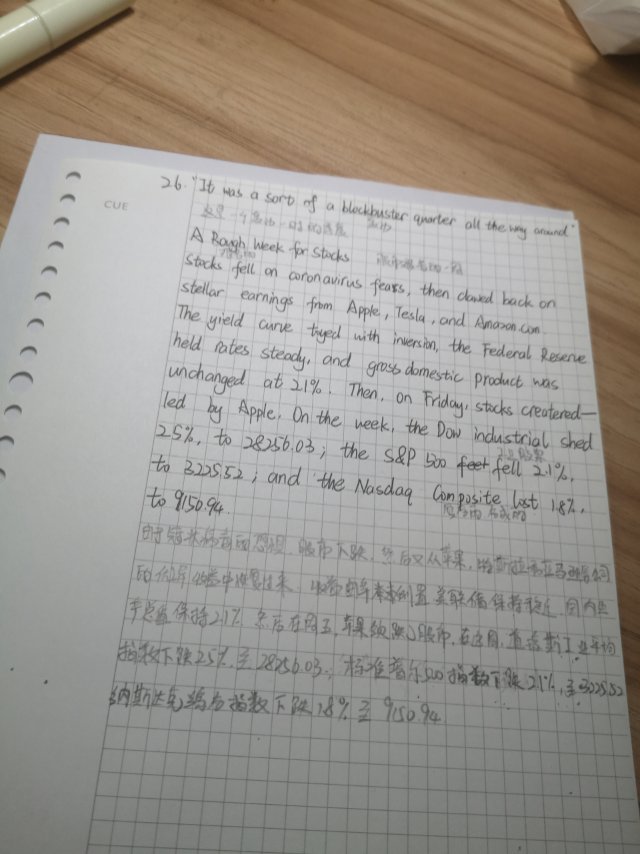 CUE
26. "It was a sort of a blockbuster quarter all the way around"
A Rough Week for Stocks
Stocks fell on coronavirus fears, then clawed back on
stellar earnings from Apple, Tesla, and Amazon.com.
The yield curve tryed with inversion, the Federal Reserve
held rates steady, and gross domestic product was
unchanged at 2.1%. Then, on Friday, stocks createred—
led by Apple. On the week, the Dow industrial shed
2.5%, to 28256.03; the S&P 500 feet fell 2.1%,
to 3225.52; and the Nasdaq Composite lost 1.8%,
to 9150.94.
股市下跌, 然后又从苹果, 特斯拉和亚马逊公司
美联储保持稳定, 国内生
保持2.1%. 然后在周五, 苹果领跌股市, 在这周, 道琼斯工业平均
指数下跌2.5%, 至28256.03; 标准普尔500指数下跌2.1%, 至3225.52
纳斯达克综合指数下跌1.8% 至 9150.94